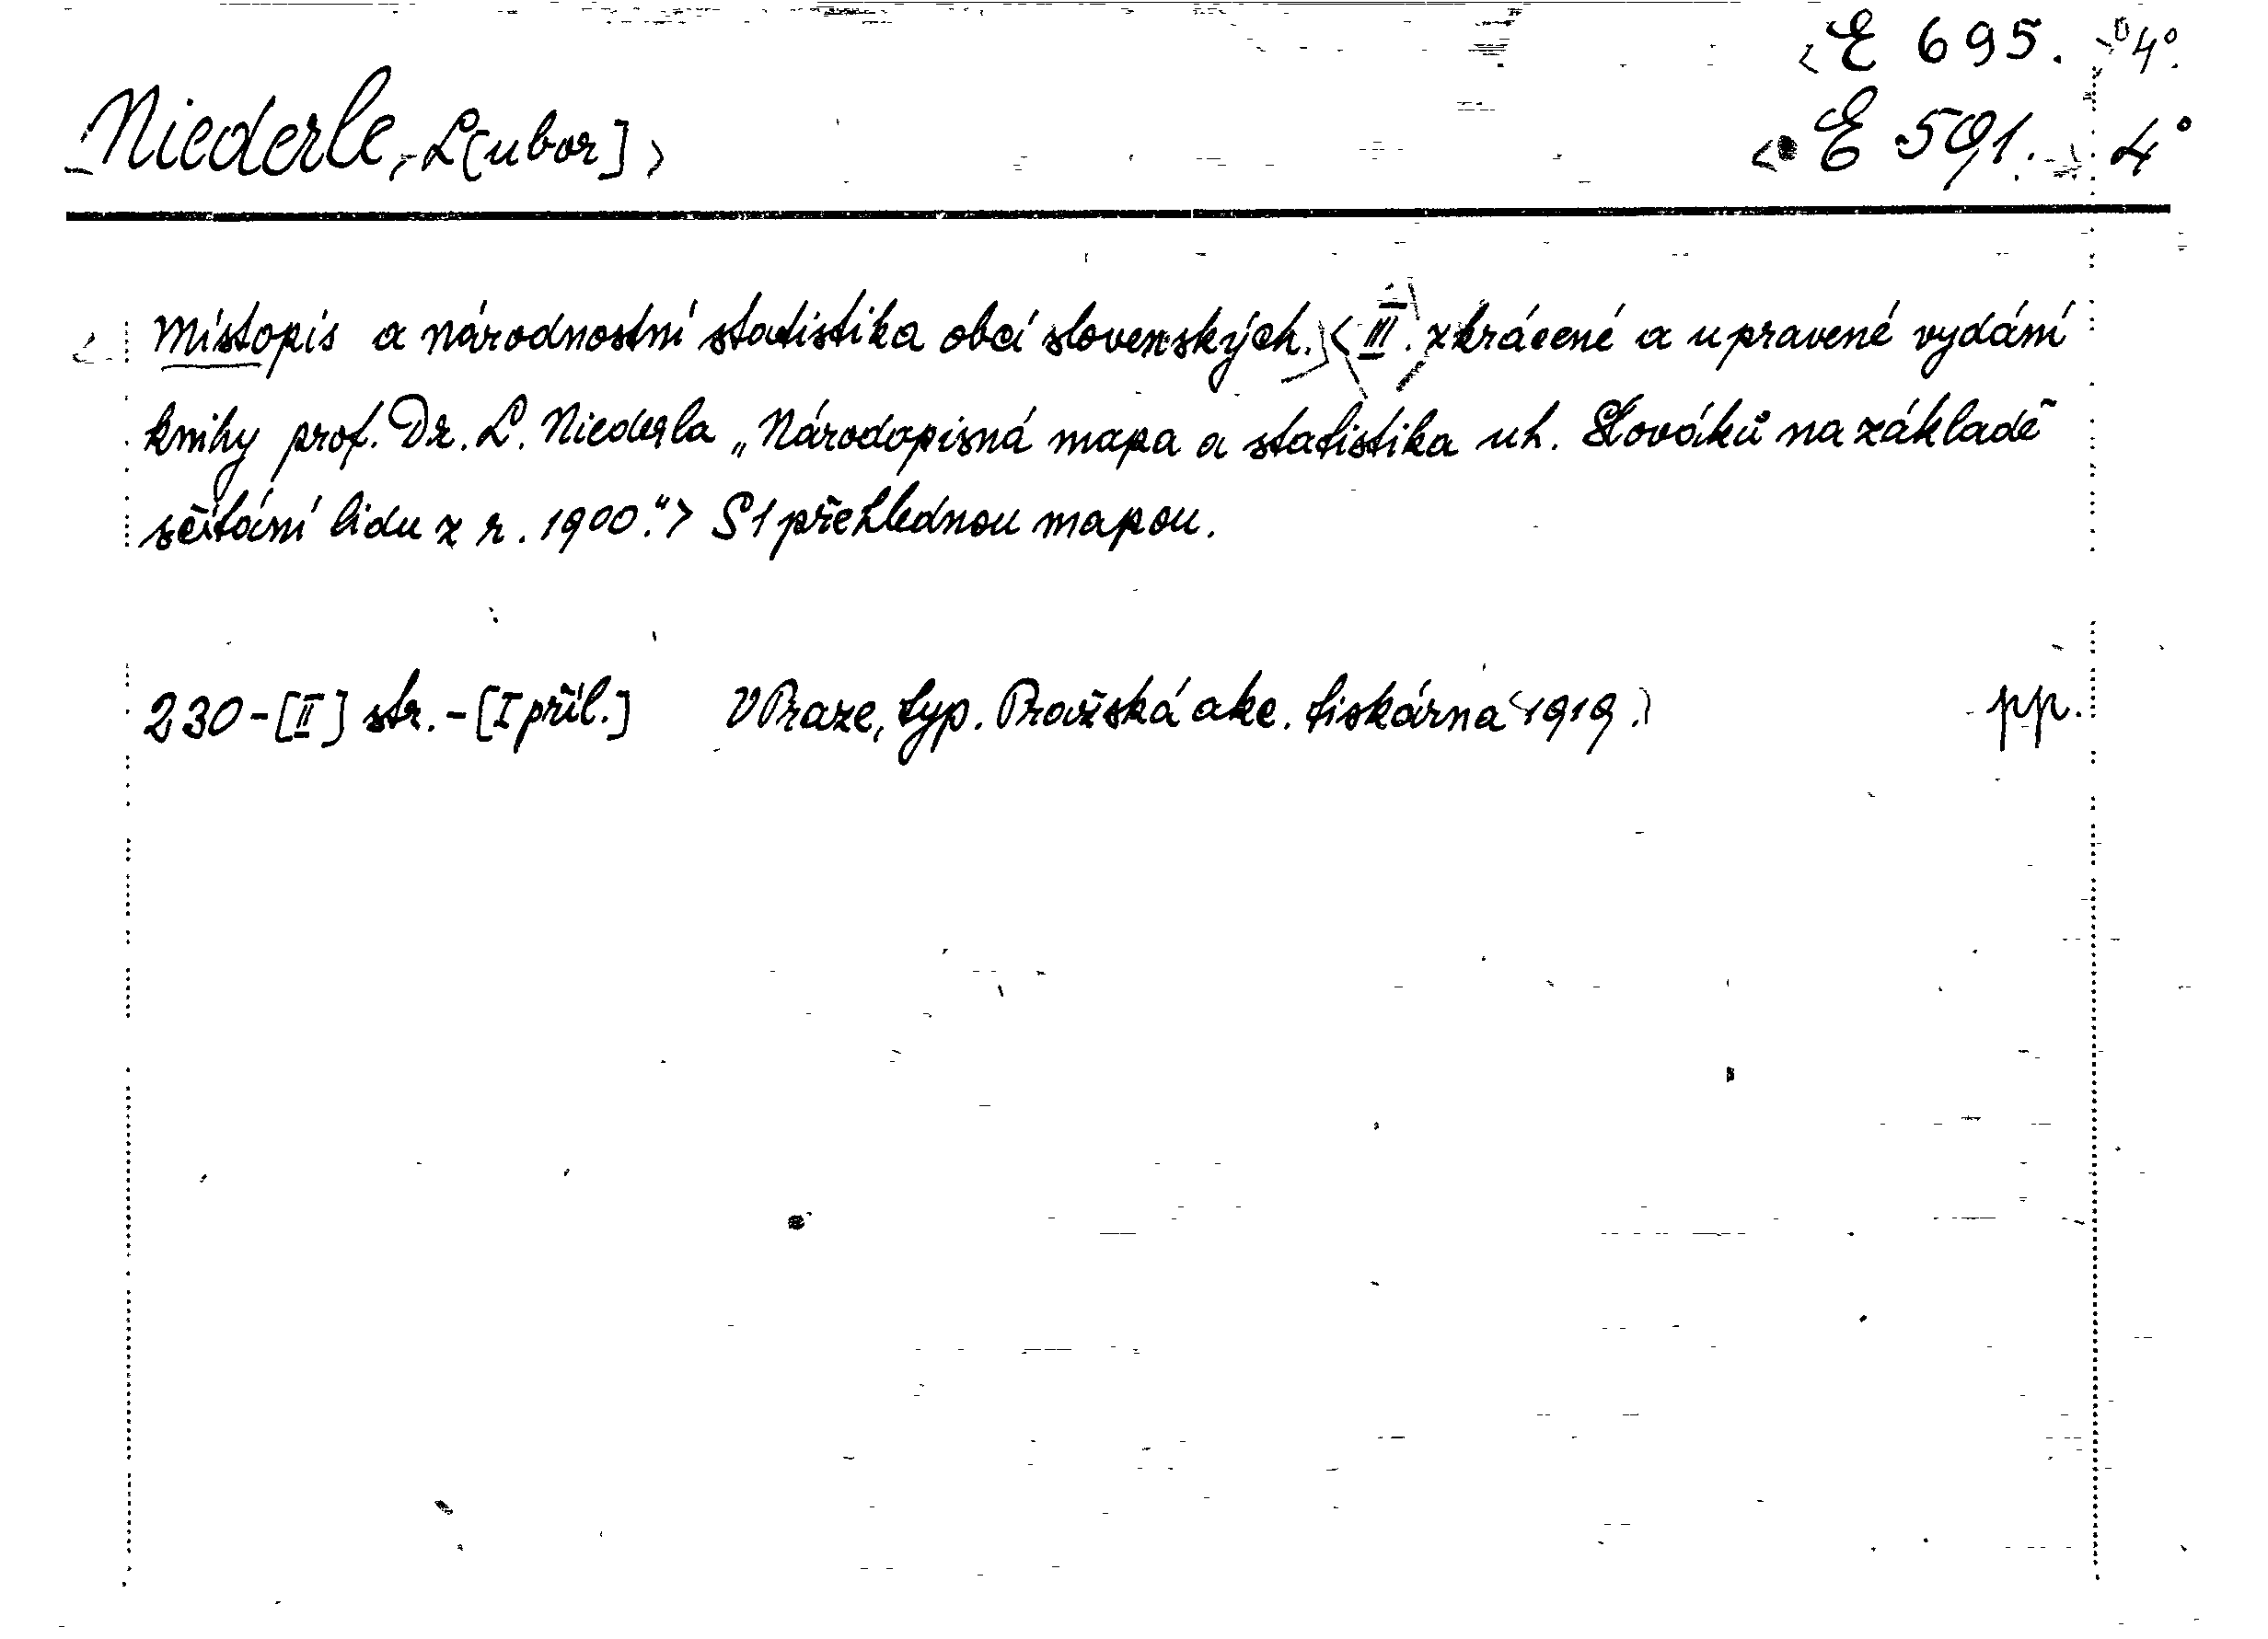 <E 695. 4°
Niederle, L[ubor]> <E 591. 4°
Místopis a národnostní statistika obcí slovenských. <III. zkrácené a upravené vydání
knihy prof. Dr. L. Niederla „Národopisná mapa a statistika uh. Slováků na základě
sčítání lidu z r. 1900.“> S 1 přehlednou mapou.
230-[II] str.-[I příl.] V Praze, typ. Pražská akc. tiskárna <1919.> pp.